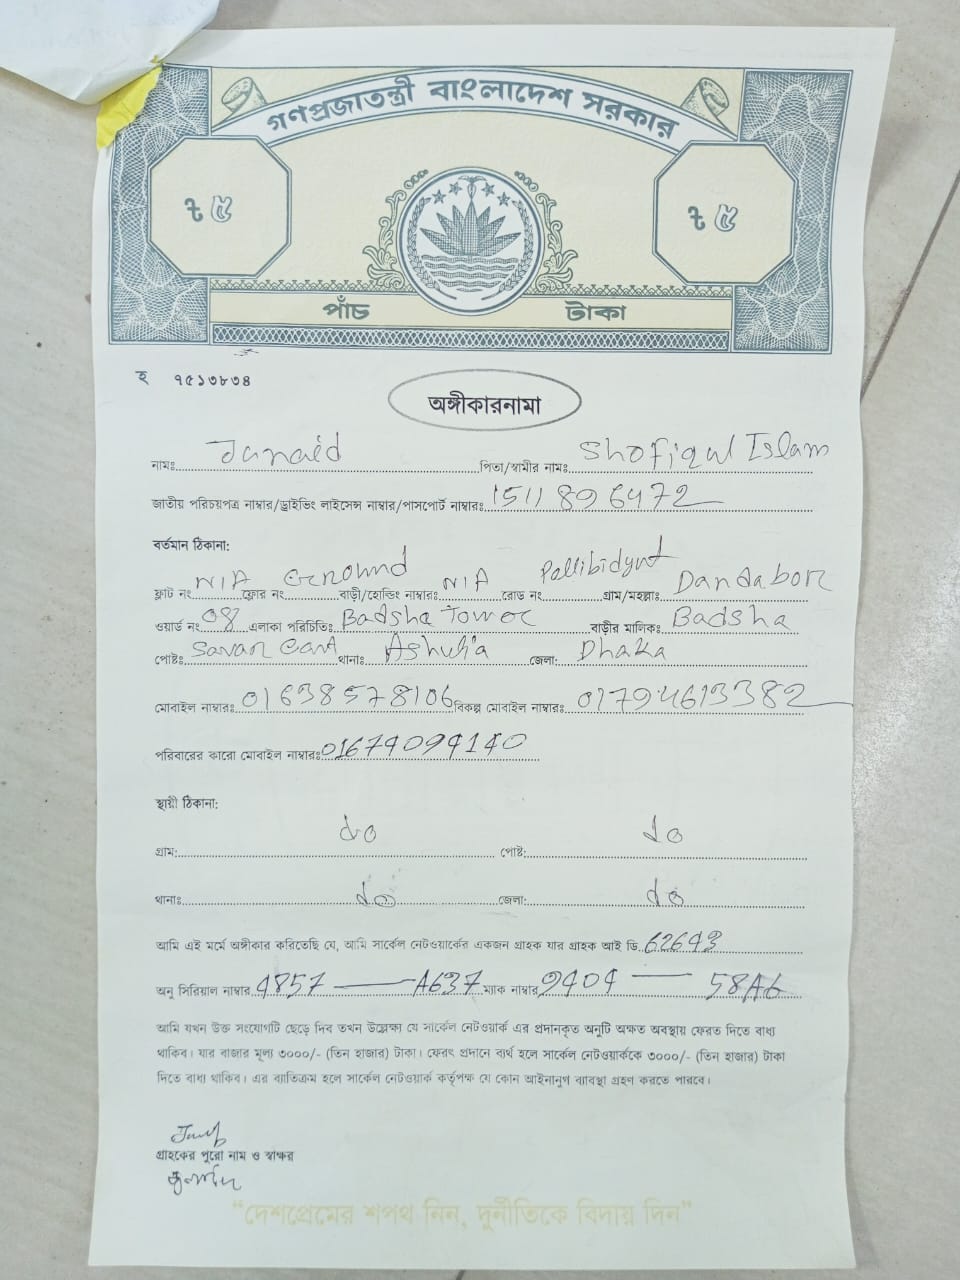 গণপ্রজাতন্ত্রী বাংলাদেশ সরকার
৳ ৫ ৳ ৫
পাঁচ টাকা
হ ৭৫১৩৮৩৪
অঙ্গীকারনামা
নামঃ Junaid পিতা/স্বামীর নামঃ Shofiqul Islam
জাতীয় পরিচয়পত্র নাম্বার/ড্রাইভিং লাইসেন্স নাম্বার/পাসপোর্ট নাম্বারঃ 1511896472
বর্তমান ঠিকানা:
ফ্লাট নং N/A ফ্লোর নং Ground বাড়ী/হোল্ডিং নাম্বারঃ N/A রোড নং Pallibidyut গ্রাম/মহল্লাঃ Dandabor
ওয়ার্ড নং 08 এলাকা পরিচিতিঃ Badsha Tower বাড়ীর মালিকঃ Badsha
পোষ্টঃ Savar Cant থানাঃ Ashulia জেলা: Dhaka
মোবাইল নাম্বারঃ 01638578106 বিকল্প মোবাইল নাম্বারঃ 01794613382
পরিবারের কারো মোবাইল নাম্বারঃ 01674094140
স্থায়ী ঠিকানা:
গ্রাম: do পোষ্ট: do
থানাঃ do জেলা: do
আমি এই মর্মে অঙ্গীকার করিতেছি যে, আমি সার্কেল নেটওয়ার্কের একজন গ্রাহক যার গ্রাহক আই ডি 62643
অনু সিরিয়াল নাম্বার 4857 — A637 ম্যাক নাম্বার 9404 — 58A6
আমি যখন উক্ত সংযোগটি ছেড়ে দিব তখন উল্লেক্ষ্য যে সার্কেল নেটওয়ার্ক এর প্রদানকৃত অনুটি অক্ষত অবস্থায় ফেরত দিতে বাধ্য
থাকিব। যার বাজার মূল্য ৩০০০/- (তিন হাজার) টাকা। ফেরৎ প্রদানে ব্যর্থ হলে সার্কেল নেটওয়ার্ককে ৩০০০/- (তিন হাজার) টাকা
দিতে বাধ্য থাকিব। এর ব্যতিক্রম হলে সার্কেল নেটওয়ার্ক কর্তৃপক্ষ যে কোন আইনানুগ ব্যাবস্থা গ্রহণ করতে পারবে।
গ্রাহকের পুরো নাম ও স্বাক্ষর
"দেশপ্রেমের শপথ নিন, দুর্নীতিকে বিদায় দিন"